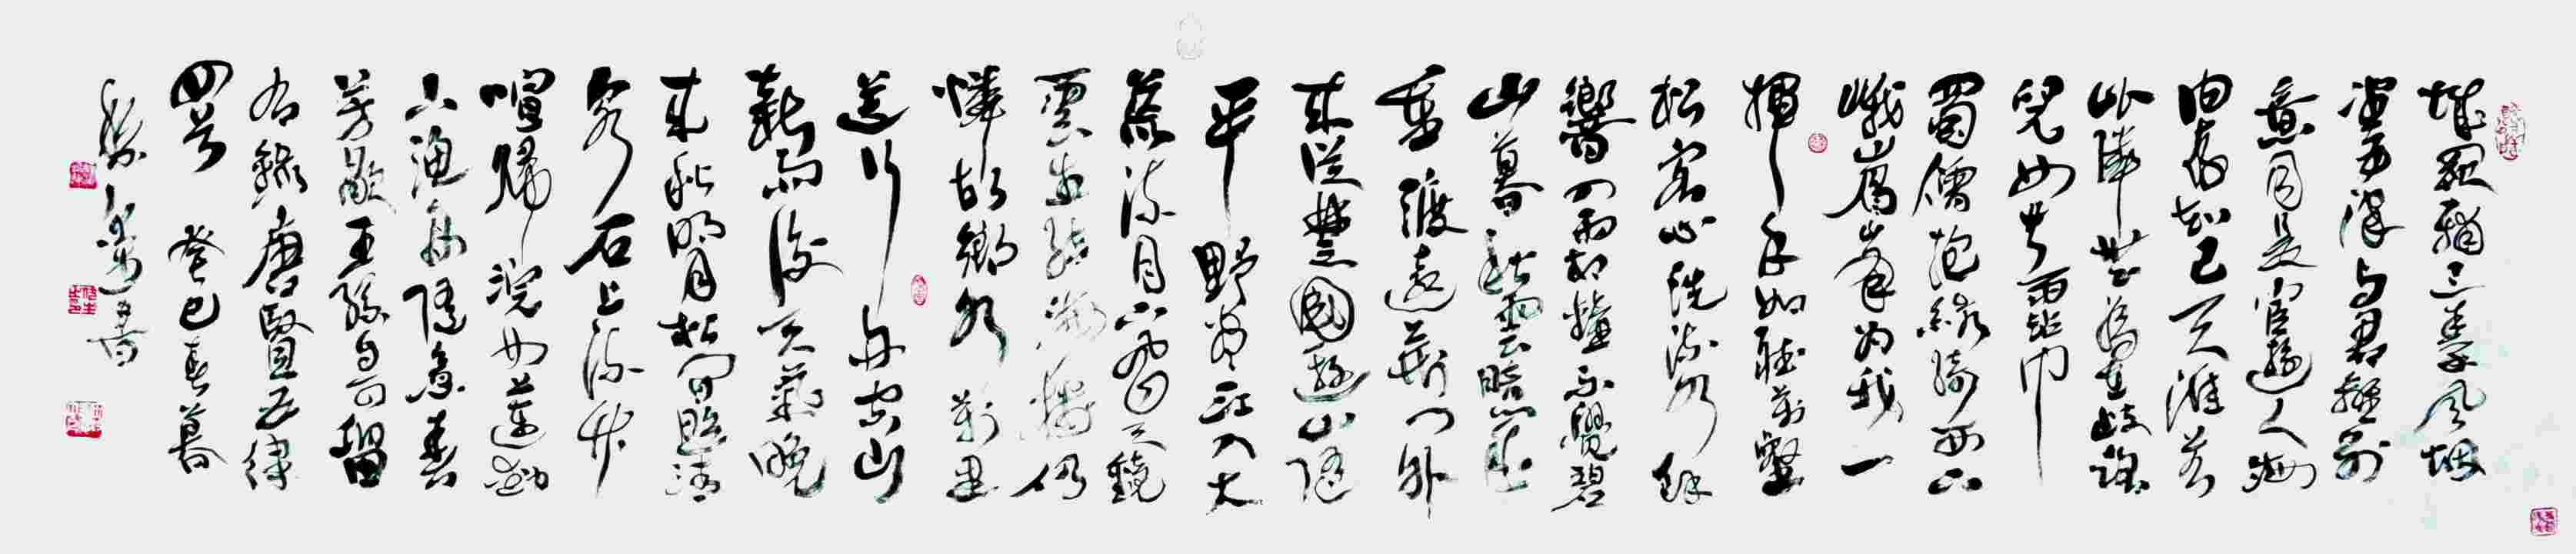 城闕輔三秦風煙
望五津与君離別
意同是宦遊人海
内存知己天涯若
比隣無為在歧路
兒女共霑巾
蜀僧抱綠綺西下
峨嵋峯為我一
揮手如聽萬壑
松客心洗流水餘
響入霜鐘不覺碧
山暮秋雲暗幾
重 渡遠荊門外
来從楚國遊山隨
平野盡江入大
荒流月下飛天鏡
雲生結海樓仍
憐故鄉水萬里
送行舟 空山
新雨後天氣晚
来秋明月松間照清
泉石上流竹
喧歸浣女蓮動
下漁舟隨意春
芳歇王孫自可留
右錄唐賢五律
四首 癸巳春暮
書